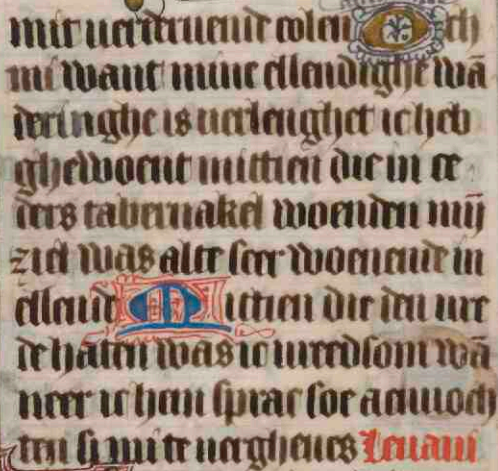 mit verteruende colen Och
mi want mine ellendighe wā
deringhe is verlenghet ic heb
ghewoent mittien die in ce
ders tabernakel woenden mij
ziel was alte seer woenende in
ellende Mittien die den vre
de haten was ic vreedsom wā
neer ic hem sprac soe aenvoch
ten si mi te vergheues Leuaui